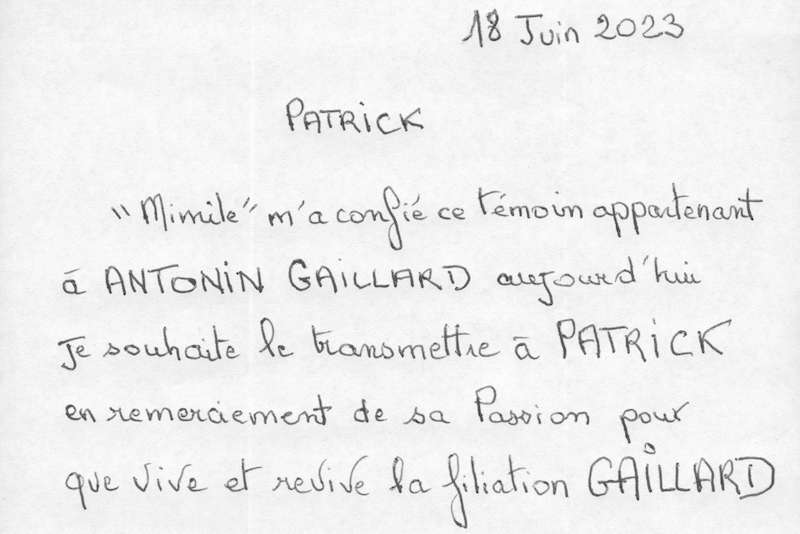 18 Juin 2023
PATRiCK
"Mimile" m'a confié ce témoin appartenant
à ANTONiN GAiLLARD aujourd'hui
Je souhaite le transmettre à PATRiCK
en remerciement de sa Passion pour
que vive et revive la filiation GAiLLARD